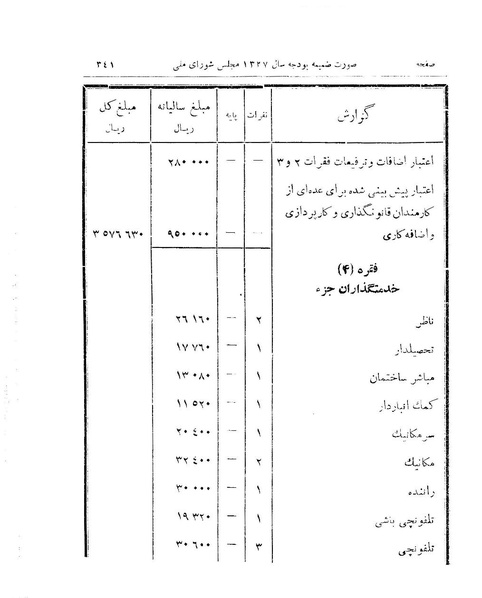 صفحه صورت ضمیمه بودجه سال ۱۳۲۷ مجلس شورای ملی ۳۴۱
گزارش نفرات پایه مبلغ سالیانه ریال مبلغ کل ریال
اعتبار اضافات و ترفیعات فقرات ۲ و ۳ — — ۲۸۰ ۰۰۰
اعتبار پیش بینی شده برای عده‌ای از
کارمندان قانونگذاری و کارپردازی
و اضافه کاری — — ۹۵۰ ۰۰۰ ۳ ۵۷۶ ۶۳۰
فقره (۴)
خدمتگذاران جزء
ناظر ۲ — ۲۶ ۱۶۰
تحصیلدار ۱ — ۱۷ ۷۶۰
مباشر ساختمان ۱ — ۱۳ ۰۸۰
کمک انباردار ۱ — ۱۱ ۵۲۰
سر مکانیک ۱ — ۲۰ ۴۰۰
مکانیک ۲ — ۳۲ ۴۰۰
راننده ۱ — ۳۰ ۰۰۰
تلفونچی باشی ۱ — ۱۹ ۳۲۰
تلفونچی ۳ — ۳۰ ۶۰۰